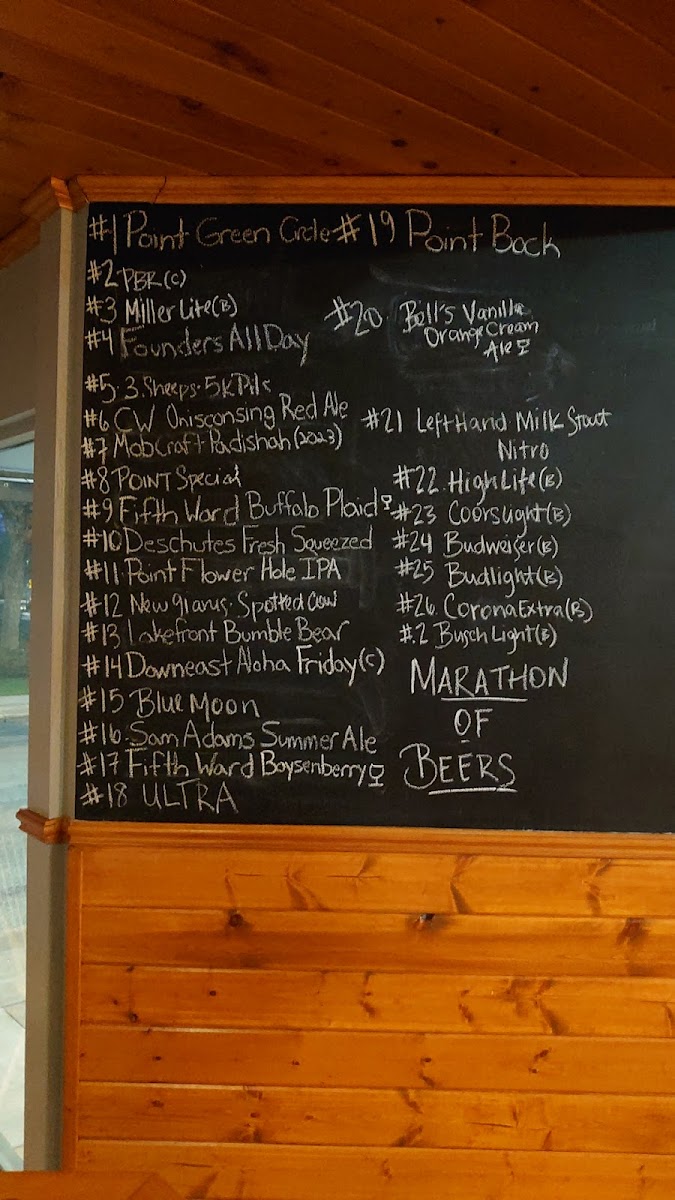 #1 Point Green Circle
#2 PBR (C)
#3 Miller Lite (B)
#4 Founders All Day
#5. 3. Sheeps. 5K Pils
#6 CW Onisconsing Red Ale
#7 MobCraft Padishah (2023)
#8 POINT SPECIAL
#9 Fifth Ward Buffalo Plaid
#10 Deschutes Fresh Squeezed
#11 Point Flower Hole IPA
#12 New glarus. Spotted Cow
#13 Lakefront Bumble Bear
#14 Downeast Aloha Friday (C)
#15 Blue Moon
#16. Sam Adams Summer Ale
#17 Fifth Ward Boysenberry
#18 ULTRA
#19 Point Bock
#20. Bell's Vanilla
Orange Cream
Ale
#21 Left Hand Milk Stout
Nitro
#22. High Life (B)
#23 Coors Light (B)
#24 Budweiser (B)
#25 Budlight (B)
#26 Corona Extra (B)
#.2 Busch Light (B)
MARATHON
OF
BEERS